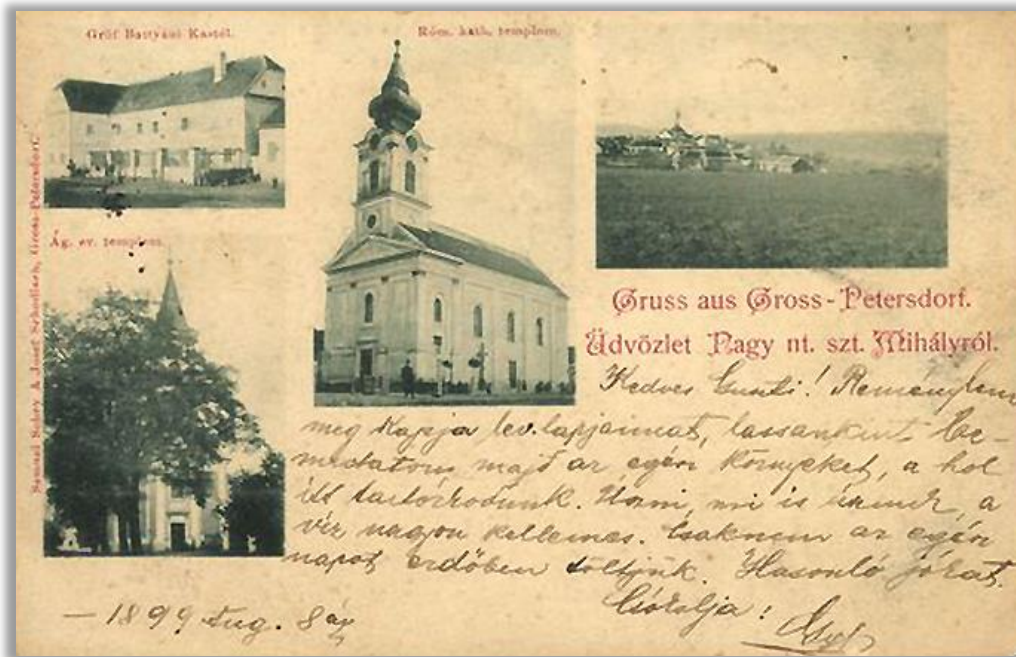 Gróf Battyáni Kastél.
Róm. kath. templom.
Ág. ev. templom.
Samuel Schey & Josef Schodlach, Gross-Petersdorf.
Gruss aus Gross-Petersdorf.
Üdvözlet Nagy nt. szt. Mihályról.
Kedves Gunti! Reménylem
meg kapja lev. lapjaimat, lassankint be-
mutatom majd az egész környéket, a hol
itt tartózkodunk. Úszni, mi is úszunk, a
víz nagyon kellemes. Csaknem az egész
napot erdőben töltjük. Hasonló jókat.
Csókolja!
- 1899 Aug. 8án